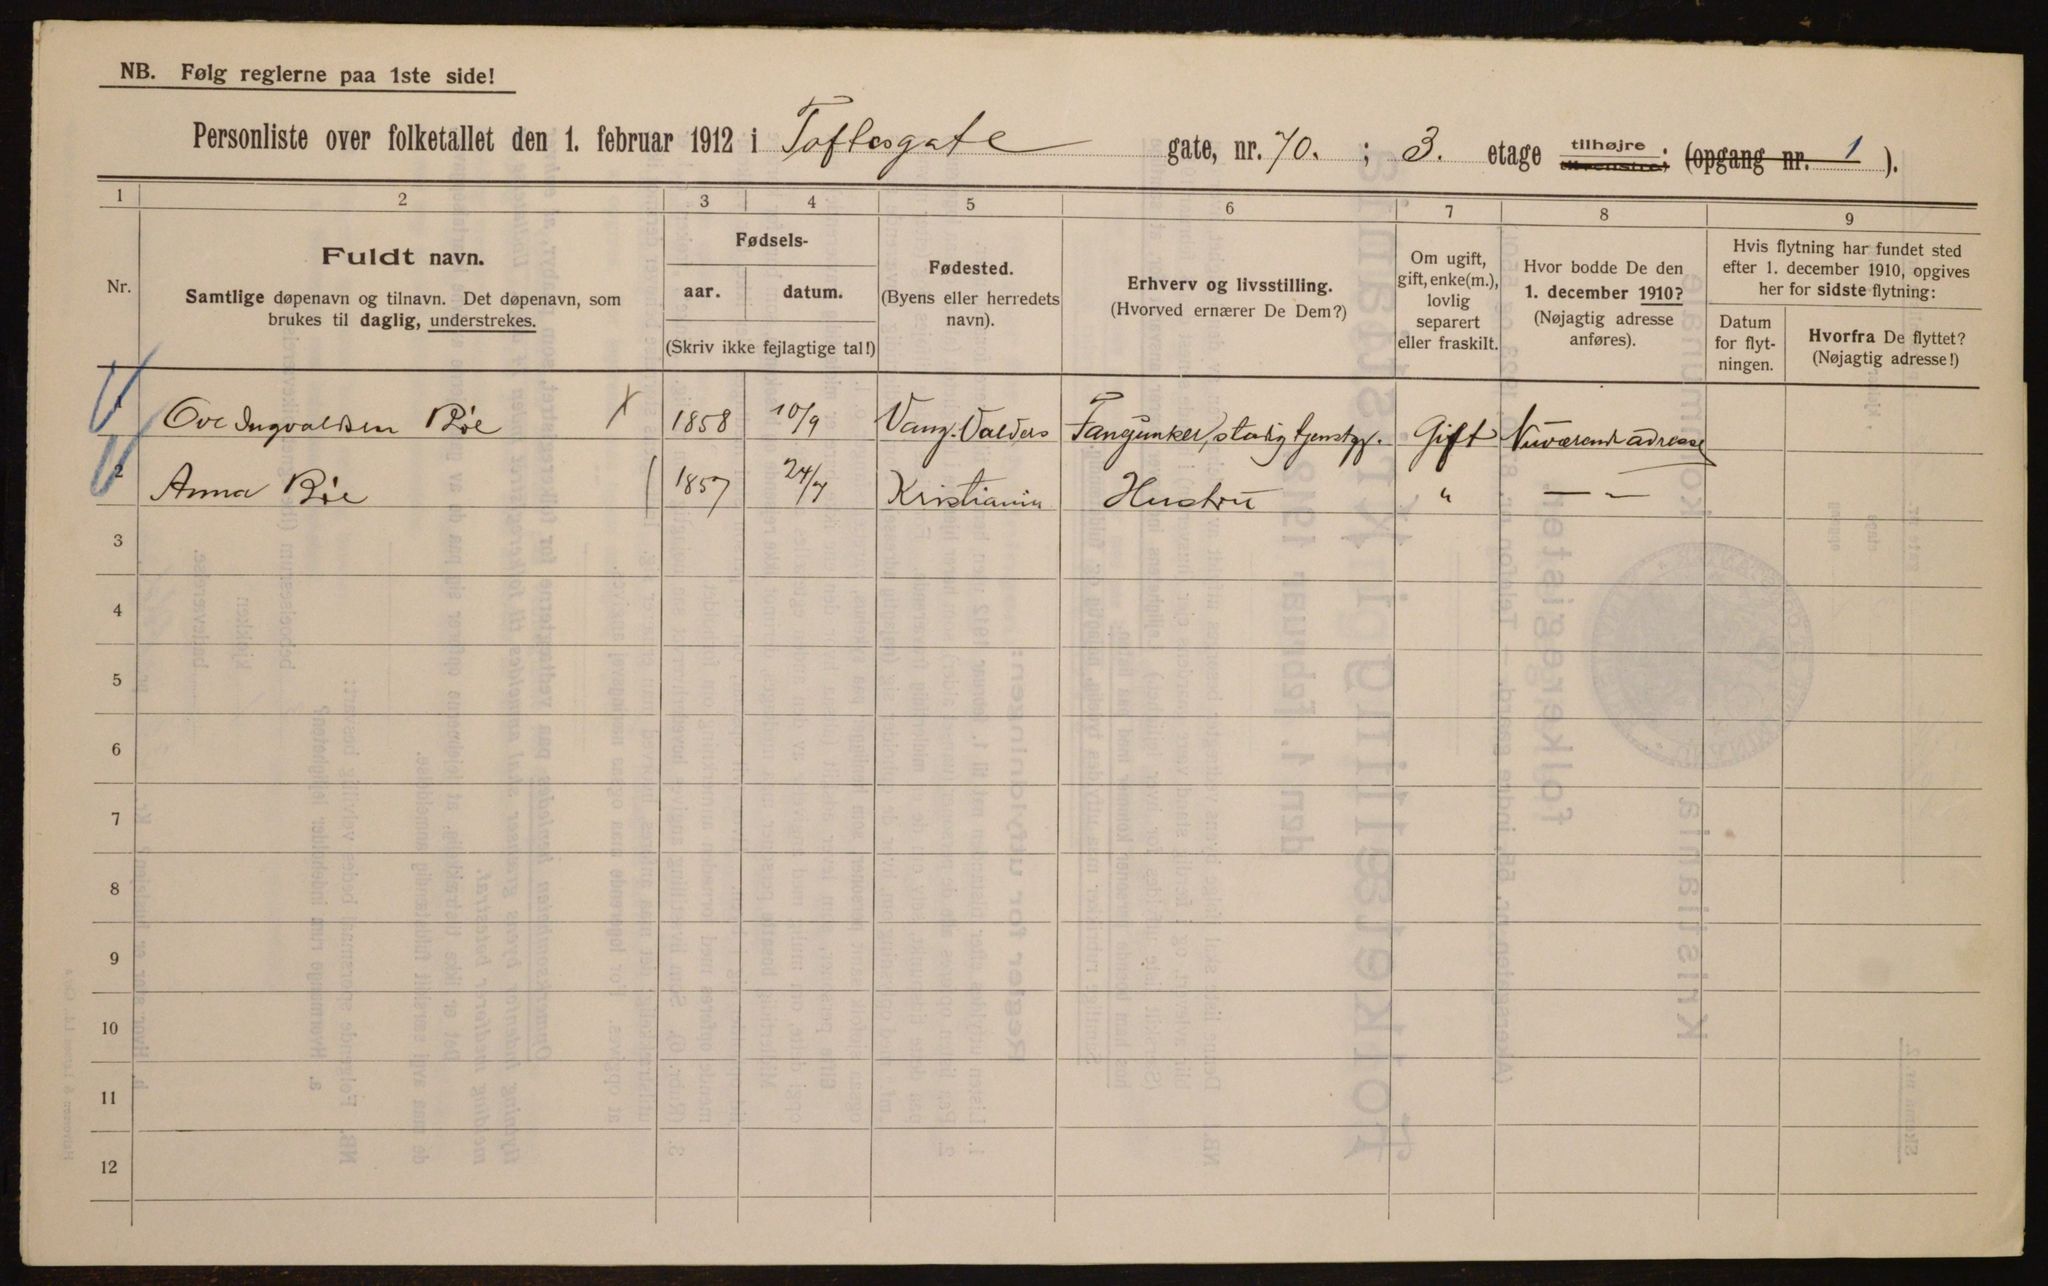 NB. Følg reglerne paa 1ste side!
Personliste over folketallet den 1. februar 1912 i Toftesgate gate, nr. 70. ; 3. etage tilhøjre tilvenstre; (opgang nr. 1 ).
1 2 3 4 5 6 7 8 9
Nr.
Fuldt navn.
Samtlige døpenavn og tilnavn. Det døpenavn, som
brukes til daglig, understrekes.
Fødsels-
aar. datum.
(Skriv ikke fejlagtige tal!)
Fødested.
(Byens eller herredets
navn).
Erhverv og livsstilling.
(Hvorved ernærer De Dem?)
Om ugift,
gift, enke(m.),
lovlig
separert
eller fraskilt.
Hvor bodde De den
1. december 1910?
(Nøjagtig adresse
anføres).
Hvis flytning har fundet sted
efter 1. december 1910, opgives
her for sidste flytning:
Datum
for flyt-
ningen.
Hvorfra De flyttet?
(Nøjagtig adresse!)
1 Ove Ingvaldsen Bøe 1858 10/9 Vang. Valders Gift Nuværende adresse
2 Anna Bøe 1857 24/7 Kristiania Hustru " — —
3
4
5
6
7
8
9
10
11
12